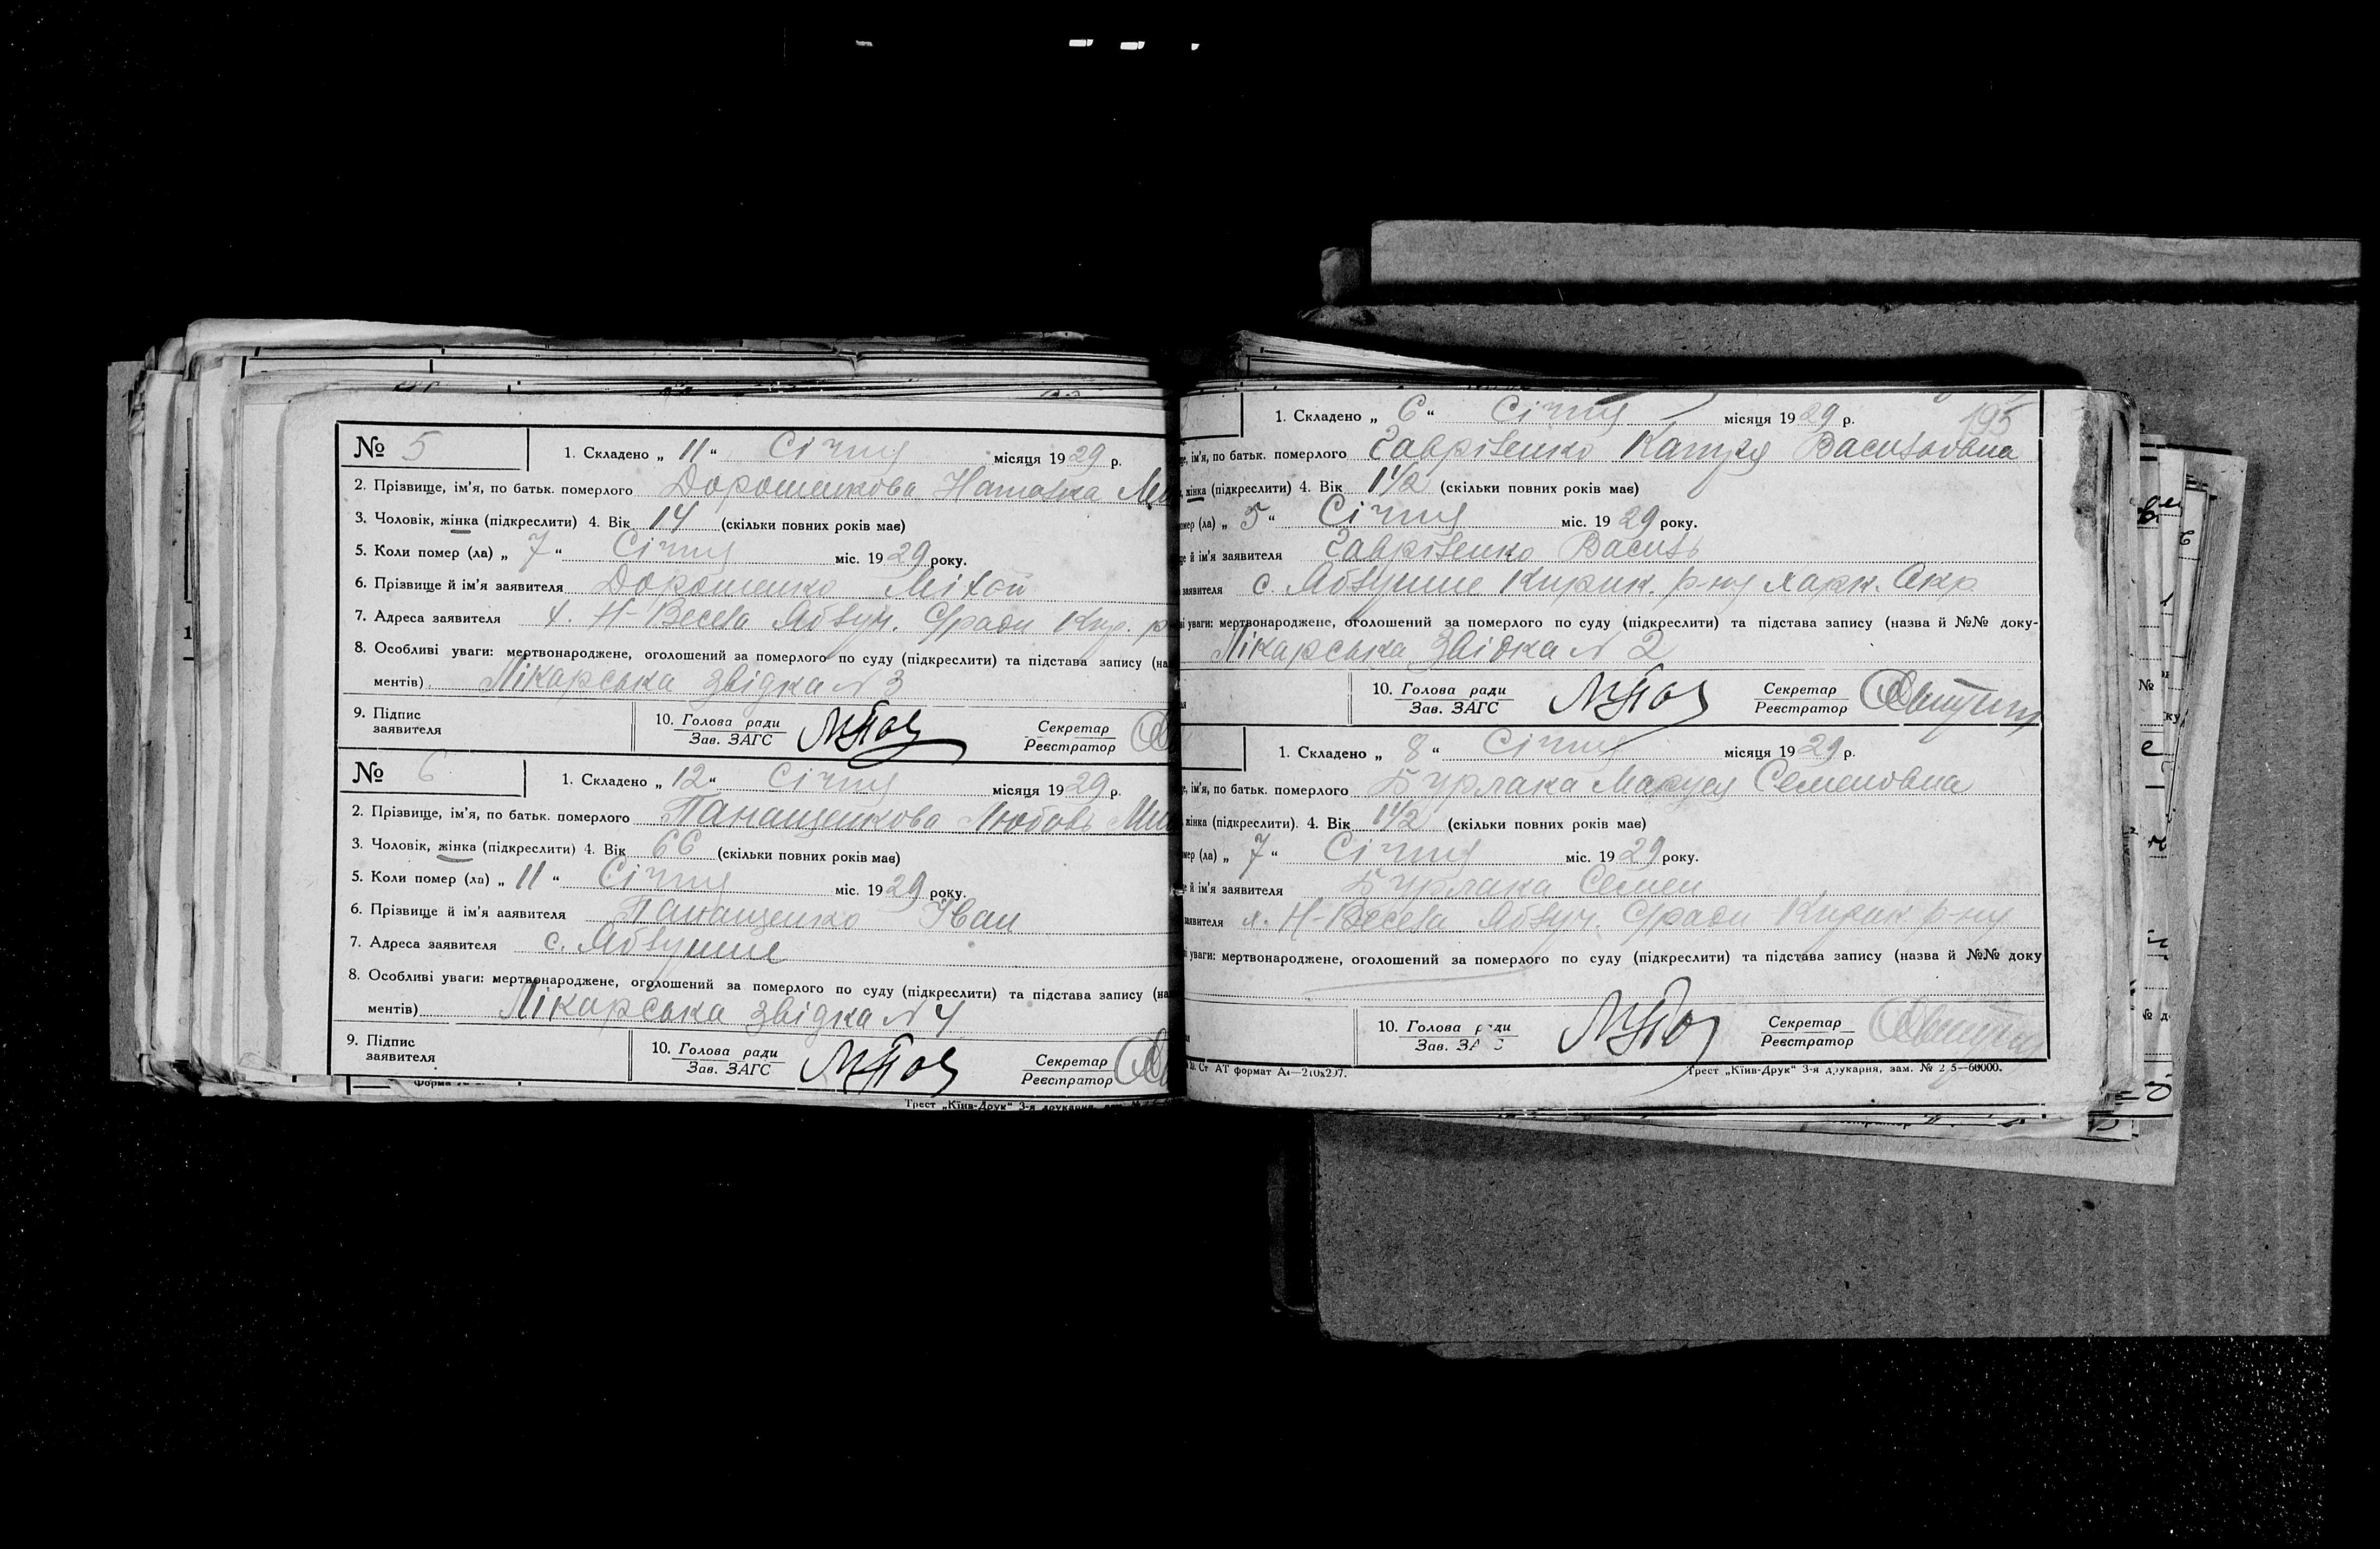 № 5 1. Складено „ 11 “ Січня місяця 1929 р.
2. Прізвище, ім'я, по батьк. померлого Дорошенкова Наталка Ми
3. Чоловік, жінка (підкреслити) 4. Вік 14 (скільки повних років має)
5. Коли помер (ла) „ 7 “ Січня міс. 1929 року.
6. Прізвище й ім'я заявителя Дорошенко
7. Адреса заявителя х. Н-Весела Яблуч. С/ради Кир. р
8. Особливі уваги: мертвонароджене, оголошений за померлого по суду (підкреслити) та підстава запису (на
ментів) Лікарська звідка № 3
9. Підпис
заявителя
10. Голова ради
Зав. ЗАГС
Секретар
Реєстратор
№ 6 1. Складено „ 12 “ Січня місяця 1929 р.
2. Прізвище, ім'я, по батьк. померлого Панащенкова Любовь Ми
3. Чоловік, жінка (підкреслити) 4. Вік 66 (скільки повних років має)
5. Коли помер (ла) „ 11 “ Січня міс. 1929 року.
6. Прізвище й ім'я заявителя Панащенко Іван
7. Адреса заявителя с. Яблучне
8. Особливі уваги: мертвонароджене, оголошений за померлого по суду (підкреслити) та підстава запису (на
ментів) Лікарська звідка № 4
9. Підпис
заявителя
10. Голова ради
Зав. ЗАГС
Секретар
Реєстратор
Трест „Київ-Друк“ 3-я друкарня
195
1. Складено „ 6 “ Січня місяця 1929 р.
ім'я, по батьк. померлого Гавріленко Катря Васильовна
жінка (підкреслити) 4. Вік 1 1/2 (скільки повних років має)
мер (ла) „ 5 “ Січня міс. 1929 року.
й ім'я заявителя Гавріленко Василь
заявителя с. Яблучне Кирик. р-ну Харк. Окр.
уваги: мертвонароджене, оголошений за померлого по суду (підкреслити) та підстава запису (назва й №№ доку-
Лікарська звідка № 2
10. Голова ради
Зав. ЗАГС
Секретар
Реєстратор
1. Складено „ 8 “ Січня місяця 1929 р.
ім'я, по батьк. померлого Бурлака Маруся Семеновна
жінка (підкреслити). 4. Вік 1 1/2 (скільки повних років має)
мер (ла) „ 7 “ Січня міс. 1929 року.
й ім'я заявителя Бурлака Семен
заявителя х. Н-Весела Яблуч. С/ради Кирик р-ну
уваги: мертвонароджене, оголошений за померлого по суду (підкреслити) та підстава запису (назва й №№ доку
10. Голова ради
Зав. ЗАГС
Секретар
Реєстратор
Ст АТ формат А4—210х297. Трест „Київ-Друк“ 3-я друкарня, зам. №